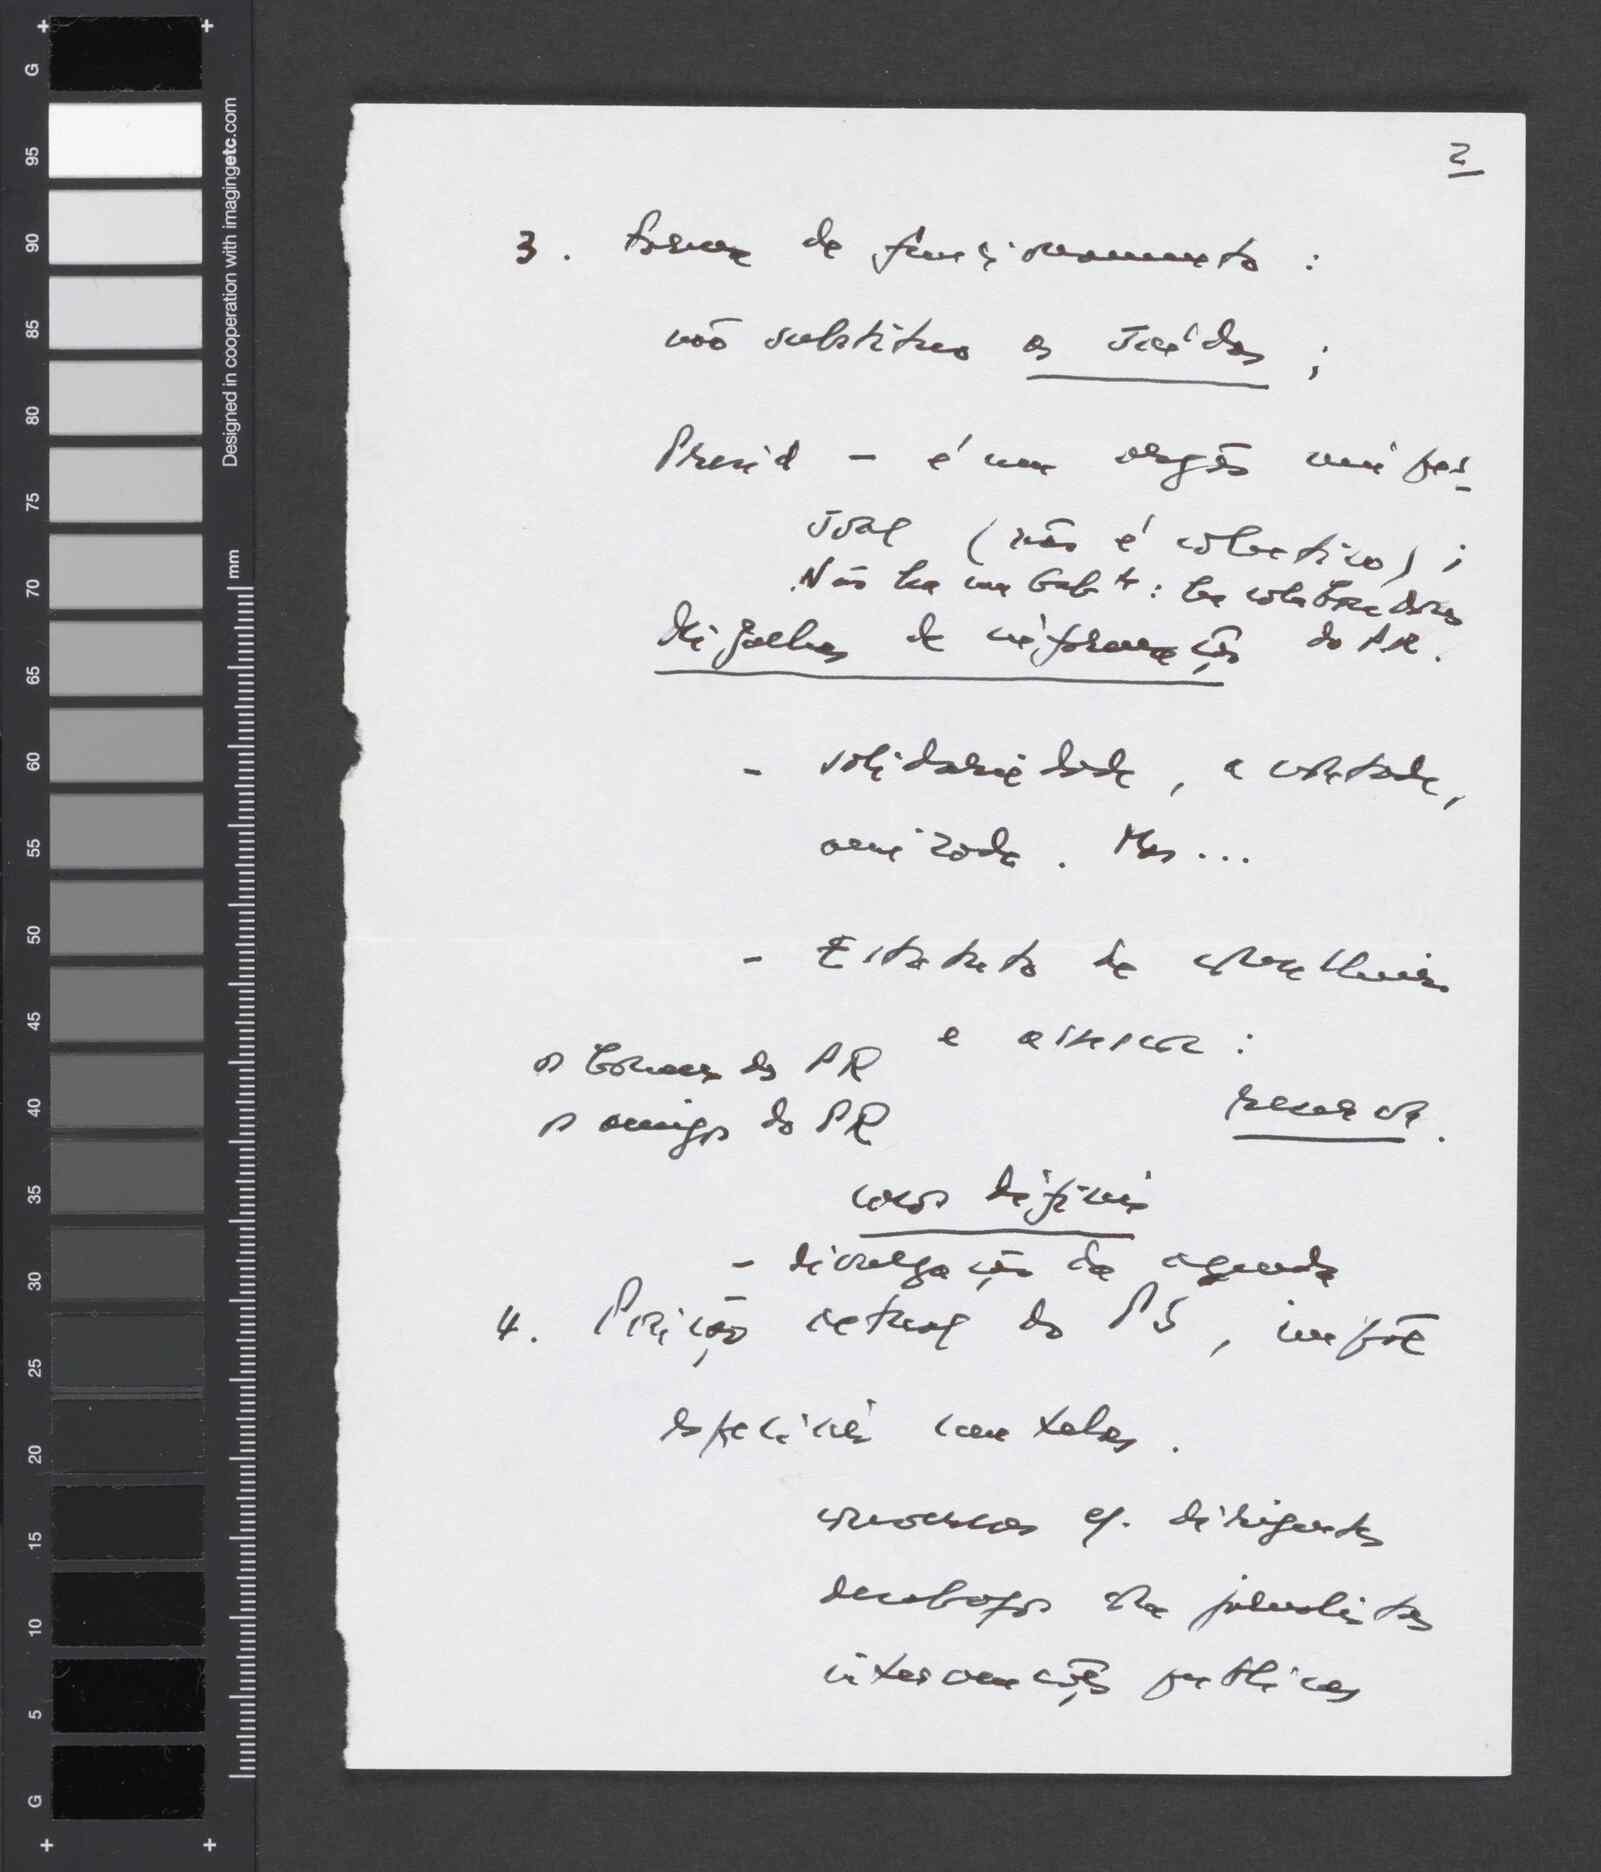 2
3. Forma de funcionamento :
não substituo os saídos ;
Presid - é um orgão unipes-
soal (não é colectivo) ;
Não há um Gab te : há colaboradores
do PR.
de informação
- solidariedade, a vontade,
amizade. Mas...
- Estatuto de conselheiro
e assessor :
os homens do PR
reserva.
os amigos do PR
casos difíceis
- divulgação da agenda
4. Posição actual do PS, impõe
especiais cautelas.
conversas c/. dirigentes
desabafos com jornalistas
intervenções publicas
G
95
90
85
80
75
70
65
60
55
50
45
40
35
30
25
20
15
10
5
G
mm
Designed in cooperation with imagingetc.com